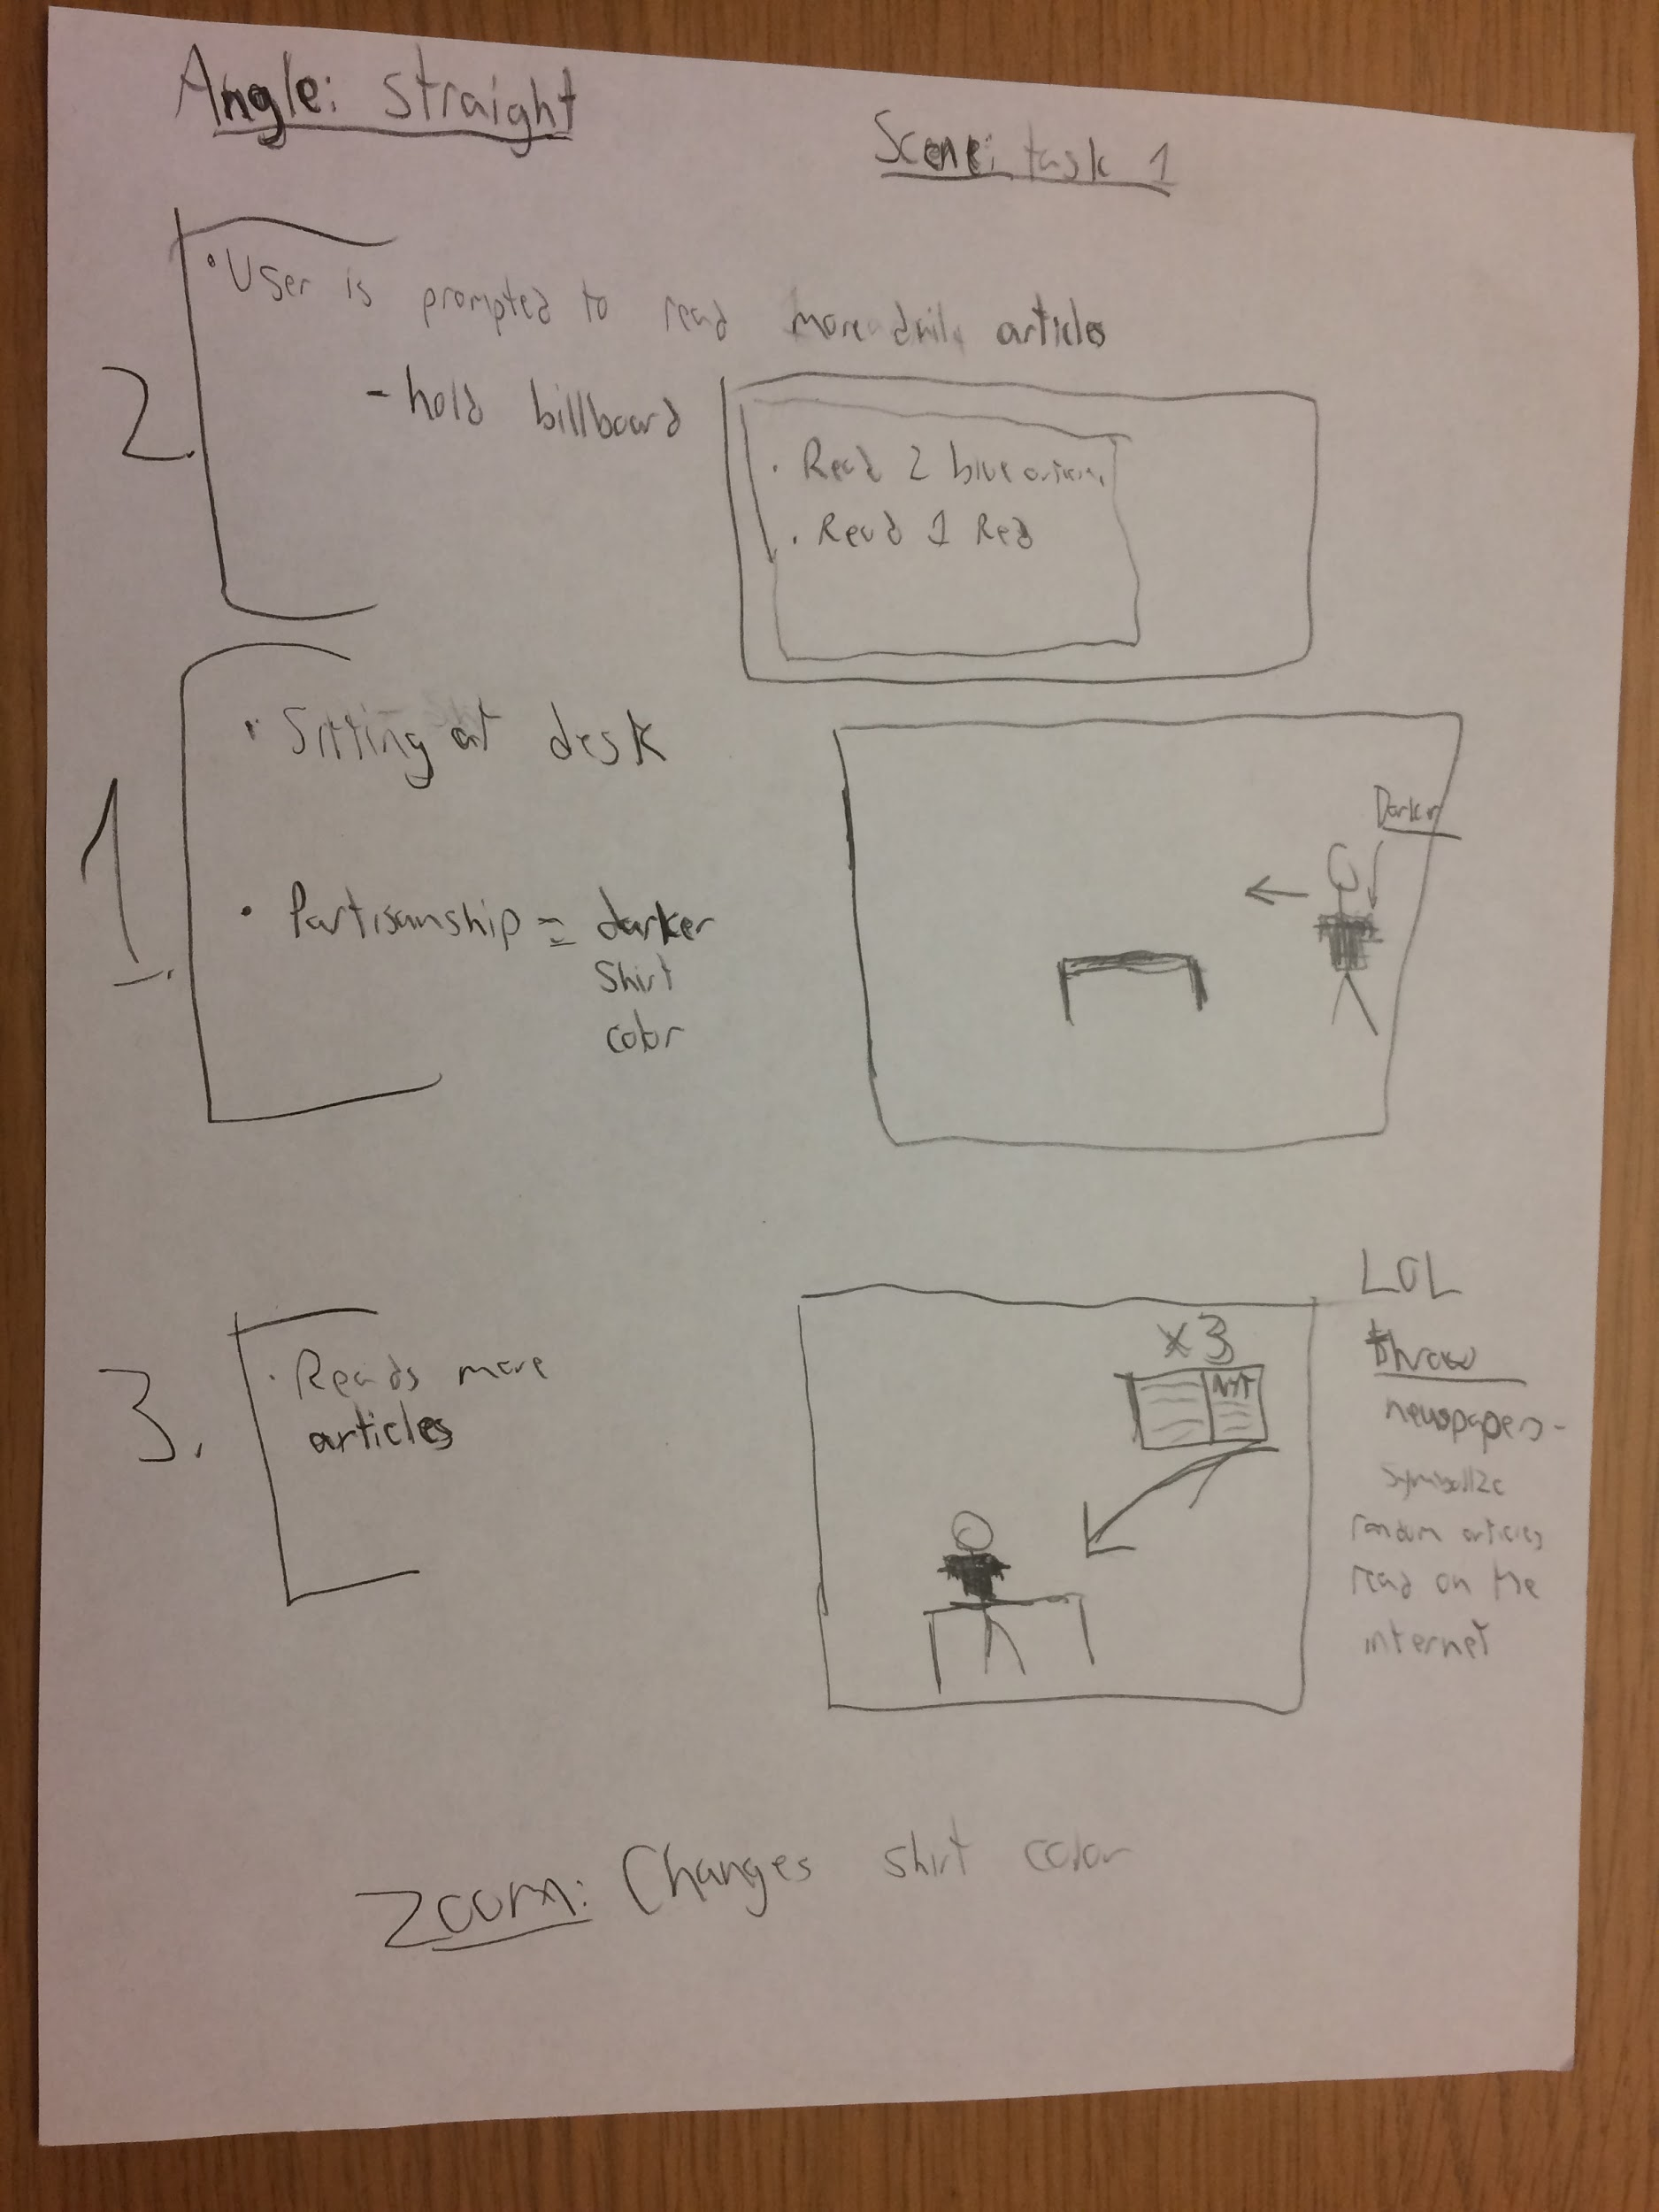 Angle: straight
Scene: task 1
2.
• User is prompted to read more daily articles
- hold billboard
• Read 2 blue articles
• Read 1 Red
1.
• Sitting at desk
• Partisanship = darker
shirt
color
Darker
3.
• Reads more
articles
x3
NYT
LOL
throw
newspapers -
symbolize
random articles
read on the
internet
Zoom: Changes shirt color